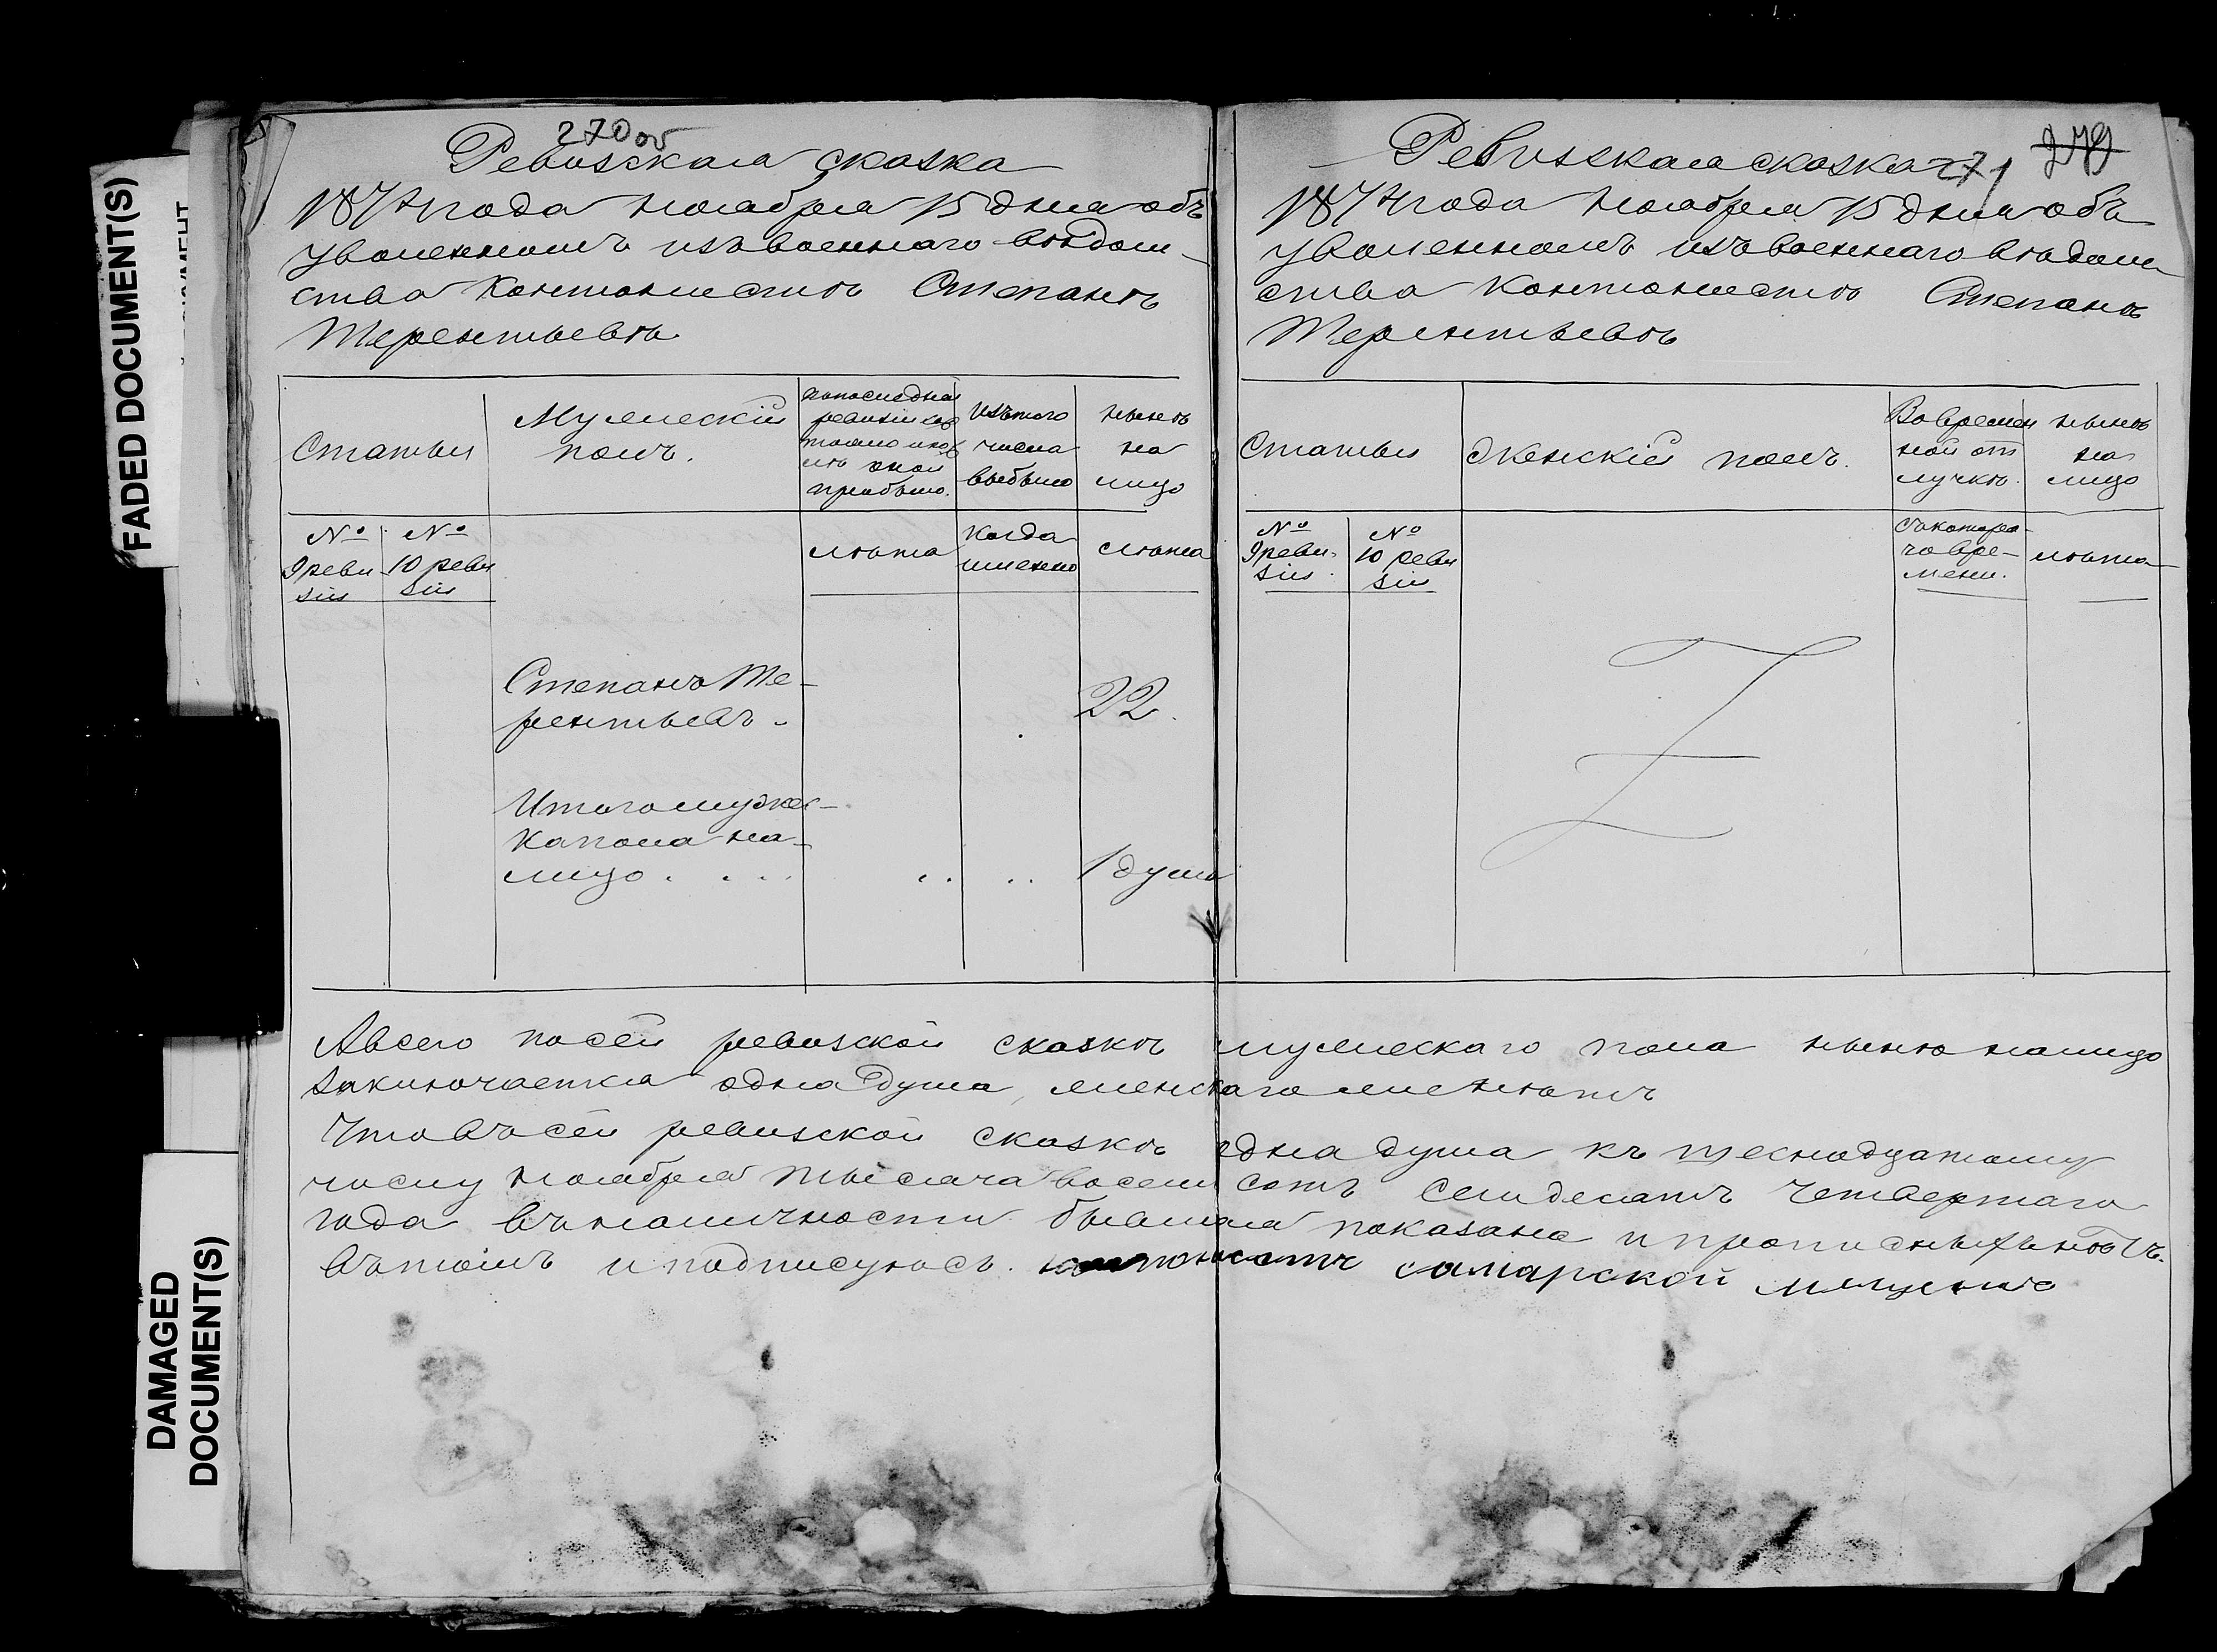 FADED DOCUMENT(S)
DAMAGED
DOCUMENT(S)
270 об
Ревизская сказка
1874 года ноября 15 дня объ
уволенномъ изъ военнаго вѣдом-
ства Кантонистѣ Степанѣ
Терентьевѣ
Статьи
Мужескій
полъ.
По последней
ревизіи сос
тояло и пос
лѣ оной
прибыло.
Изъ того
числа
выбыло
Нынѣ
на
лицо
№
9 реви-
зіи
№
10 реви
зіи
лѣта
Когда
именно
лѣта
Степанъ Те-
рентьевъ
22.
Итого мужес-
ка пола на-
лицо . . . .
1 душа
271
279
Ревизская сказка
1874 года Ноября 15 дня объ
уволенномъ изъ военнаго вѣдом
ства Кантонистѣ Степанѣ
Терентьевѣ
Статьи
Женскій полъ.
Во времен
ной от
лучкѣ.
Нынѣ
на
лицо
№
9 реви-
зіи.
№
10 реви
зіи
Съ котора-
го вре-
мени.
лѣта
А всего по сей ревизской сказкѣ мужескаго пола нынѣ налицо
заключается одна душа, женскаго же нѣтъ
Что въ сей ревизской сказкѣ одна душа къ шеснадцатому
числу Ноября тысяча восемь сотъ семдесятъ четвертаго
года въ наличности бывшая показана и прописныхъ нѣтъ
въ томъ и подписуюсь. самарской мещенинъ